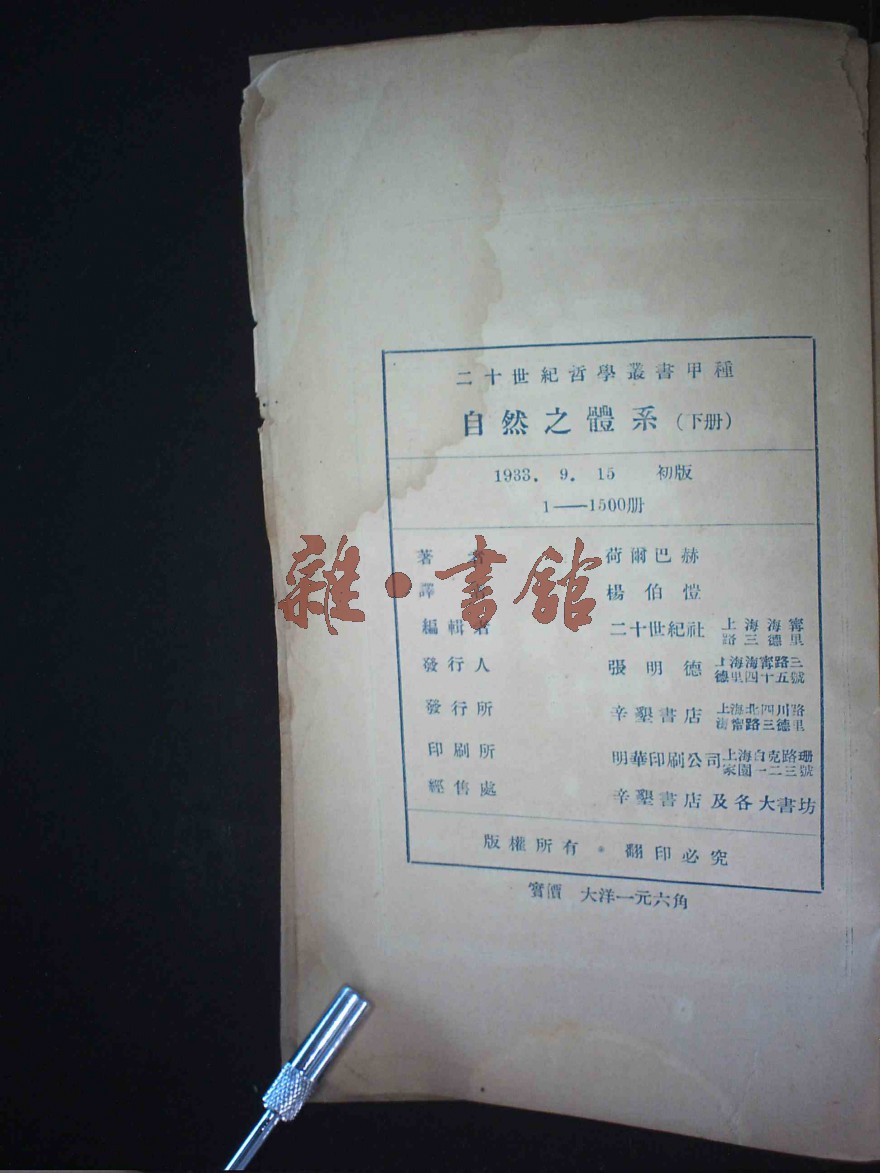 二十世紀哲學叢書甲種
自然之體系（下册）
1933. 9. 15 初版
1——1500册
著者 荷爾巴赫
譯者 楊伯愷
編輯者 二十世紀社 上海海甯路三德里
發行人 張明德 上海海甯路三德里四十五號
發行所 辛墾書店 上海北四川路海甯路三德里
印刷所 明華印刷公司 上海白克路珊家園一二三號
經售處 辛墾書店及各大書坊
版權所有・翻印必究
實價 大洋一元六角
雜・書館